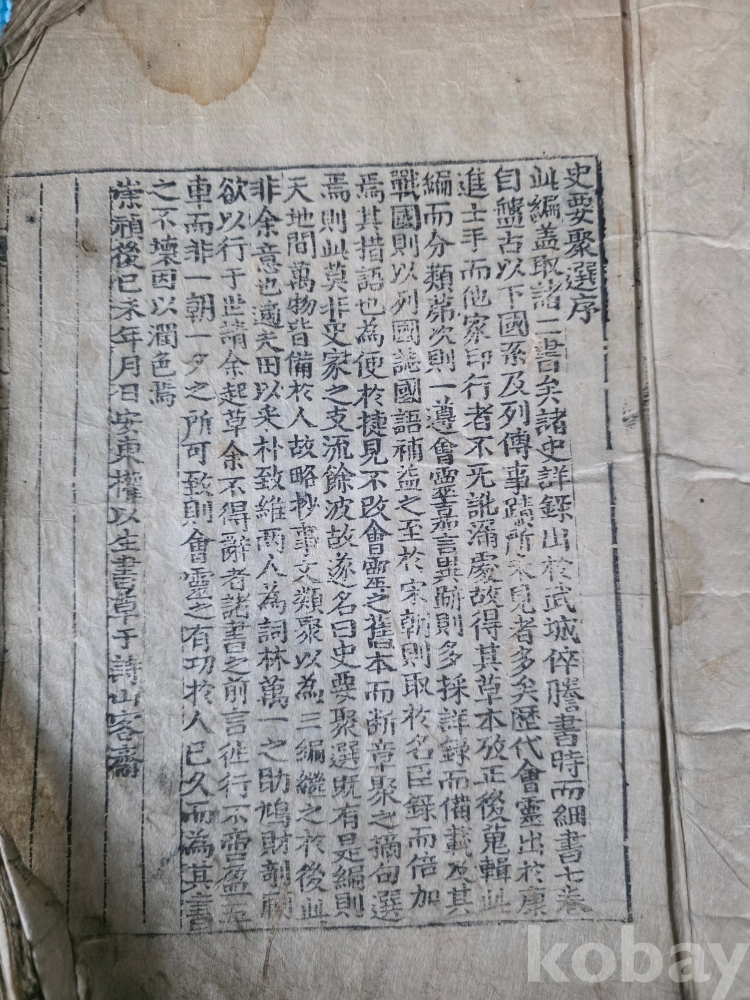 史要聚選序
此編盖取諸二書矣諸史詳錄出於武城倅謄書時而細書七卷
自盤古以下國系及列傳事蹟所未見者多矣歷代會靈出於康
進士手而他家印行者不无訛漏處故得其草本攷正後蒐輯此
編而分類苐次則一遵會靈嘉言異跡則多採詳錄而備載及其
戰國則以列國誌國語補益之至於宋朝則取於名臣錄而倍加
焉其措語也為便於捷見不改會靈之舊本而斷章聚之摘句選
焉則此莫非史家之支流餘波故遂名曰史要聚選既有是編則
天地間萬物皆備於人故略抄事文類聚以為三編繼之於後此
非余意也適夫田以采朴致維兩人為詞林萬一之助鳩財剞劂
欲以行于世請余起草余不得辭者諸書之前言徃行不啻盈五
車而非一朝一夕之所可致則會靈之有功於人已久而為其書
之不壞因以潤色焉
崇禎後己未年月日安東權以生書草于詩山客齋
kobay